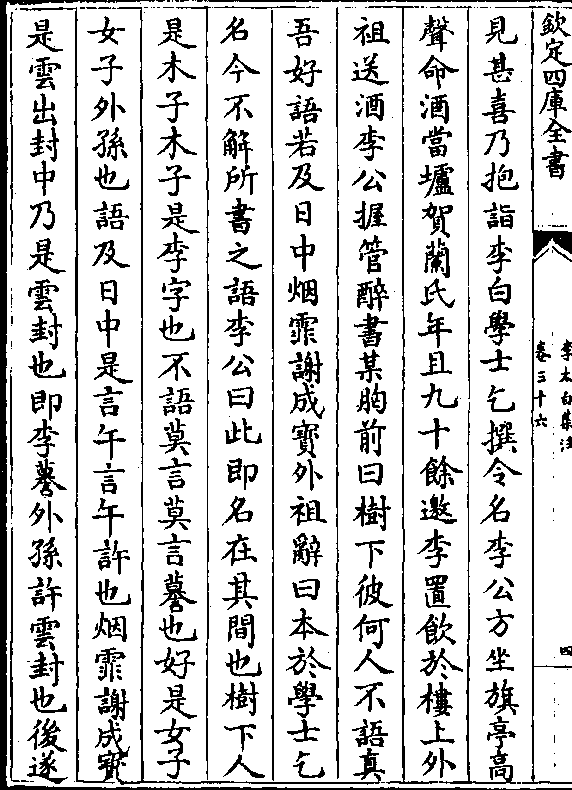 欽定四庫全書
李太白集注
卷三十六
四
見甚喜乃抱詣李白學士乞撰令名李公方坐旗亭高
聲命酒當壚賀蘭氏年且九十餘邀李置飲於樓上外
祖送酒李公握管醉書某胸前曰樹下彼何人不語真
吾好語若及日中烟霏謝成寳外祖辭曰本於學士乞
名今不解所書之語李公曰此即名在其間也樹下人
是木子木子是李字也不語莫言莫言謩也好是女子
女子外孫也語及日中是言午言午許也烟霏謝成寳
是雲出封中乃是雲封也即李謩外孫許雲封也後遂